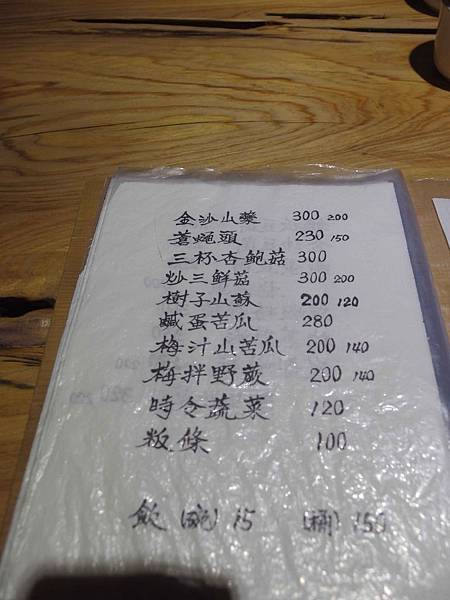 金沙山藥 300 200
蒼蠅頭 230 150
三杯杏鮑菇 300
炒三鮮菇 300 200
樹子山蘇 200 120
鹹蛋苦瓜 280
梅汁山苦瓜 200 140
梅拌野蔌 200 140
時令蔬菜 120
粄條 100
飲(碗)15 (桶)150